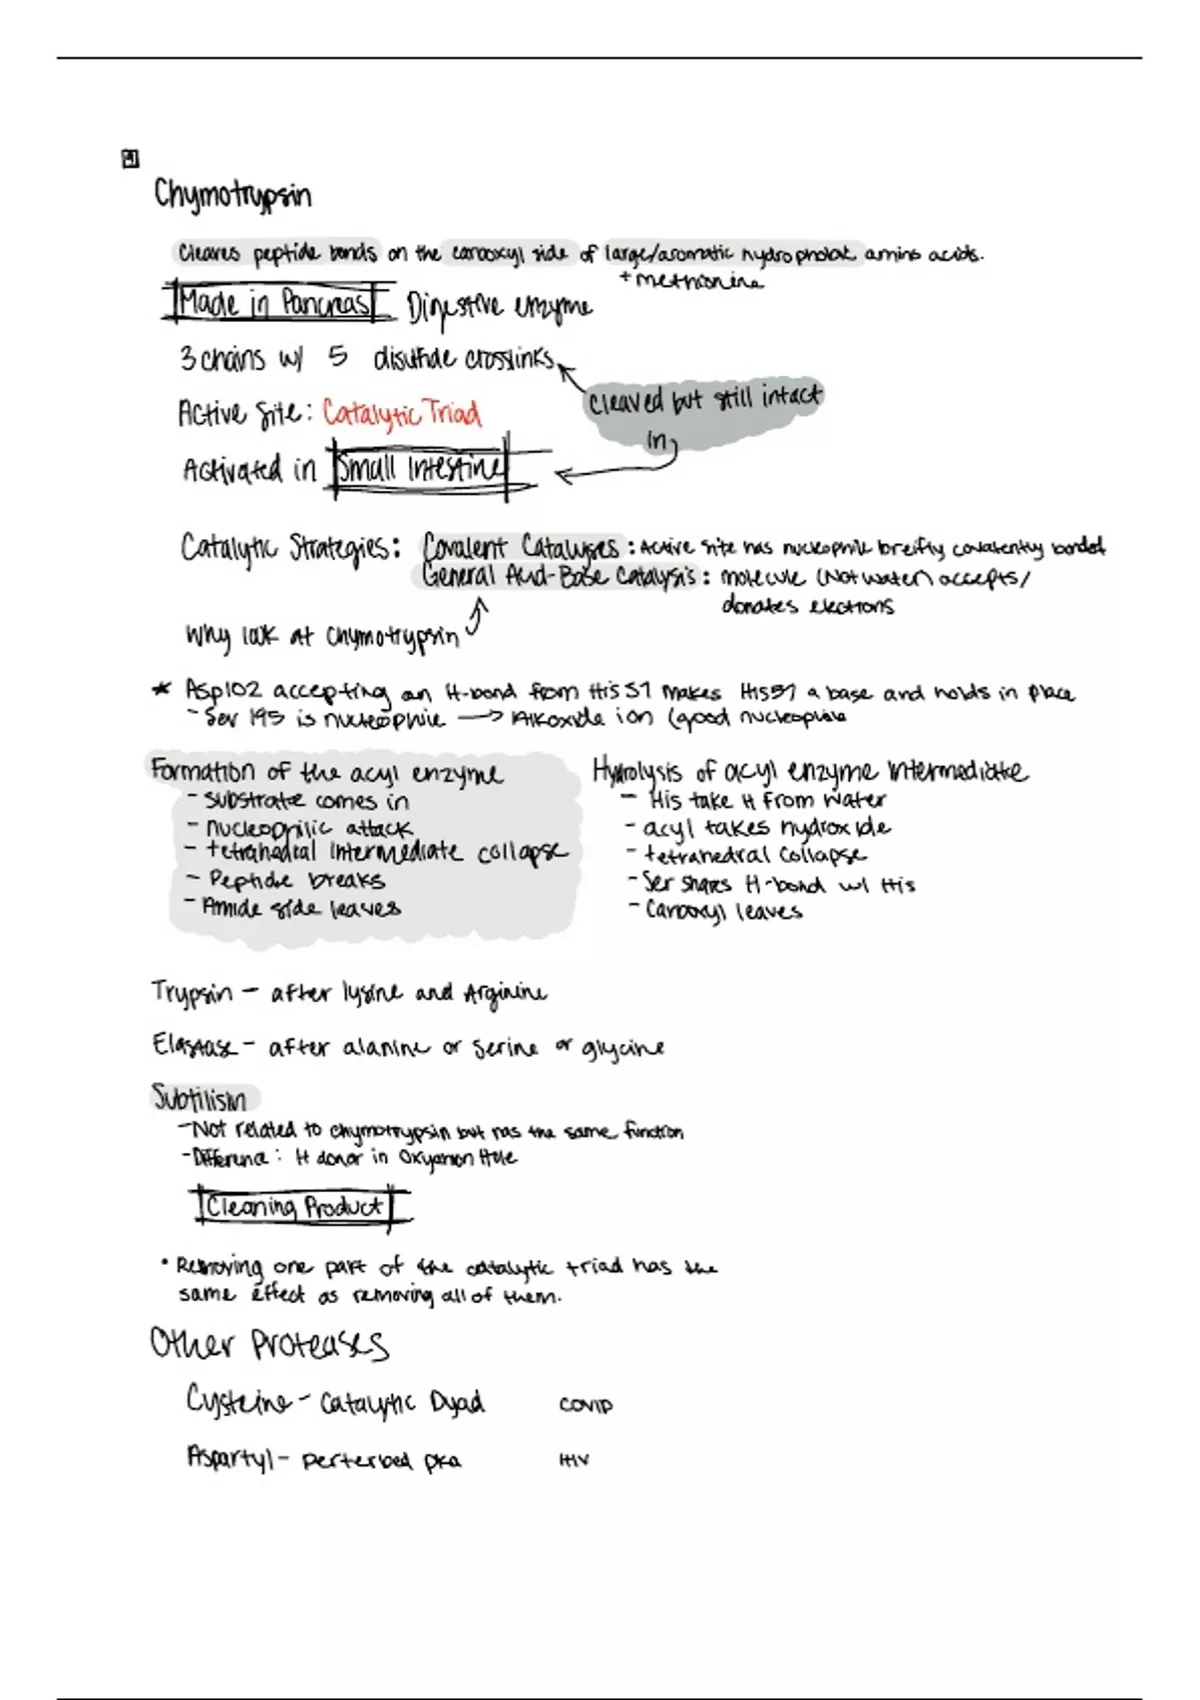 Chymotrypsin
Cleaves peptide bonds on the carboxyl side of large/aromatic hydrophobic amino acids.
+ methionine
Made in Pancreas Digestive enzyme
3 chains w/ 5 disulfide crosslinks
Cleaved but still intact
in
Active Site: Catalytic Triad
Activated in Small Intestine
Catalytic Strategies: Covalent Catalyses: Active site has nucleophile breifly covalently bonded
General Acid-Base Catalysis: molecule (Not water) accepts/
donates electrons
Why look at chymotrypsin
* Asp102 accepting an H-bond from His57 makes His57 a base and holds in place
- Ser 195 is nucleophile → Alkoxide ion (good nucleophile
Formation of the acyl enzyme
- substrate comes in
- nucleophilic attack
- tetrahedral intermediate collapse
- Peptide breaks
- Amide side leaves
Hydrolysis of acyl enzyme intermediate
- His take H from water
- acyl takes hydroxide
- tetrahedral collapse
- Ser shares H-bond w/ His
- Carboxyl leaves
Trypsin - after lysine and Arginine
Elastase - after alanine or serine or glycine
Subtilism
- Not related to chymotrypsin but has the same function
- Difference: H donor in Oxyanion Hole
Cleaning Product
• Removing one part of the catalytic triad has the
same effect as removing all of them.
Other Proteases
Cysteine - Catalytic Dyad COVID
Aspartyl - perterbed pka HIV